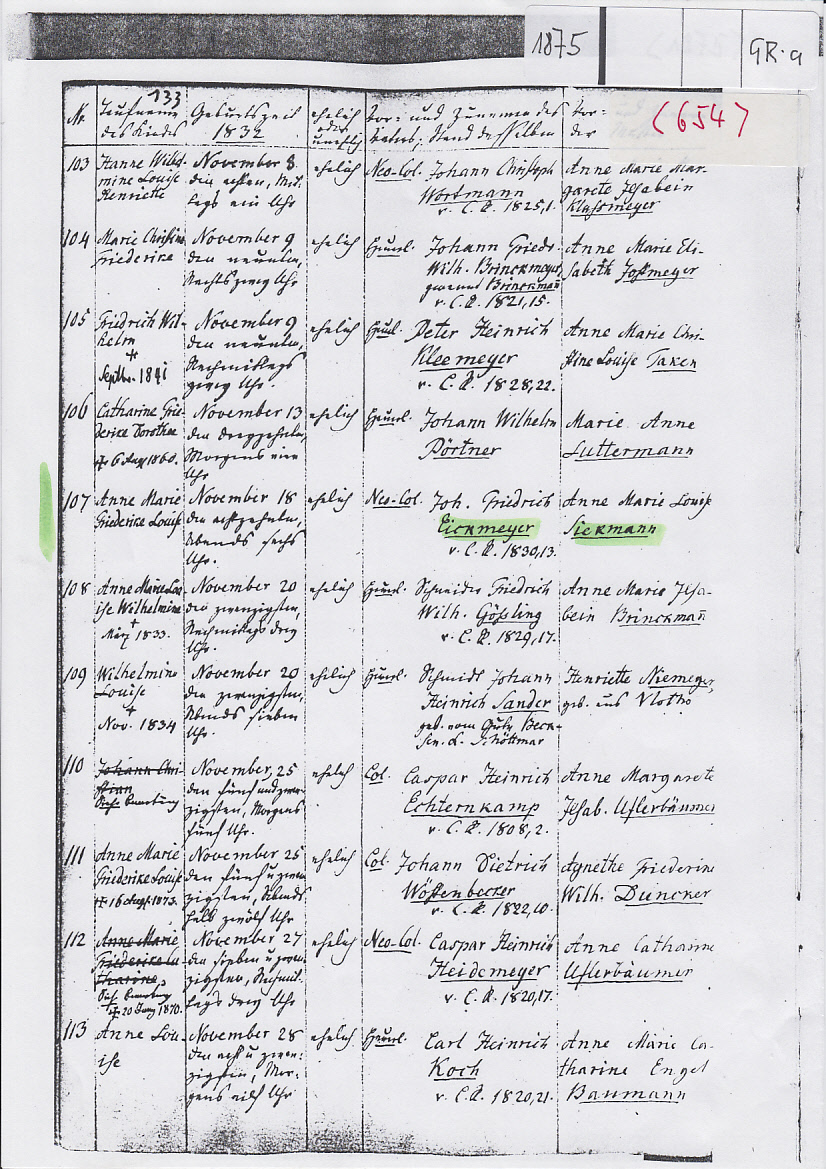 1875
GR. a
(654)
133
Nr. Taufname des Kindes
Geburtszeit 1832
ehelich oder unehelich
Vor- und Zunamen des Vaters, Stand desselben
Vor-
der
103 Hanne Wilhelmine Louise Henriette
November 8
den achten, Mittags ein Uhr
ehelich
Neo-Col. Johann Christoph
Wortmann
v. C. R. 1825,1.
Anne Marie Margarete Ilsabein
Klassmeyer
104 Marie Christine
Friederike
November 9
den neunten,
Nachts zwey Uhr
ehelich
Heuerl. Johann Friedr.
Wilh. Brinckmeyer,
genannt Brinckman
v. C. R. 1821,15.
Anne Marie Elisabeth Jossmeyer
105 Friedrich Wilhelm
+
Septbr. 1841
November 9
den neunten,
Nachmittags
zwey Uhr.
ehelich
Heuerl. Peter Heinrich
Kleemeyer
v. C. R. 1828,22.
Anne Marie Christine Louise Taken
106 Catharine Friederike Dorothee
+ 6 Aug 1860.
November 13
den dreyzehnten,
Morgens vier
Uhr
ehelich
Heuerl. Johann Wilhelm
Pörtner
Marie Anne
Luttermann
107 Anne Marie
Friederike Louise
November 18
den achtzehnten,
Abends sechs
Uhr.
ehelich
Neo-Col. Joh. Friedrich
Eickmeyer
v. C. R. 1830,13.
Anne Marie Louise
Sieckmann
108 Anne Marie Louise Wilhelmine
+
März 1833.
November 20
den zwanzigsten,
Nachmittags drey
Uhr.
ehelich
Heuerl. Schneider Friedrich
Wilh. Gößling
v. C. R. 1829,17.
Anne Marie Ilsabein Brinckmañ
109 Wilhelmine
Louise
+
Nov. 1834
November 20
den zwanzigsten,
Abends sieben
Uhr.
ehelich
Heuerl. Schmidt Johann
Heinrich Sander
geb. vom
Henriette Niemeyer,
geb. aus Vlotho
110 Johann Christian
November, 25
den fünf und zwanzigsten, Morgens
fünf Uhr.
ehelich
Col. Caspar Heinrich
Echternkamp
v. C. R. 1808,2.
Anne Margarete
Ilsab. Uflerbäumer
111 Anne Marie
Friederike Louise
+ 16 1873.
November 25
den fünf u. zwanzigsten, Abends
halb zwölf Uhr
ehelich
Col. Johann Dietrich
Wöstenbecker
v. C. R. 1822,10.
Agnethe Friederike
Wilh. Duncker
112 Anne Marie
Friederike Catharine
+ 20 1870.
November 27
den sieben u. zwanzigsten, Nachmittags drey Uhr
ehelich
Neo-Col. Caspar Heinrich
Heidemeyer
v. C. R. 1820,17.
Anne Catharine
Uflerbäumer
113 Anne Louise
November 28
den acht u. zwanzigsten, Morgens acht Uhr
ehelich
Heuerl. Carl Heinrich
Koch
v. C. R. 1820,21.
Anne Marie Catharine Engel
Baumann